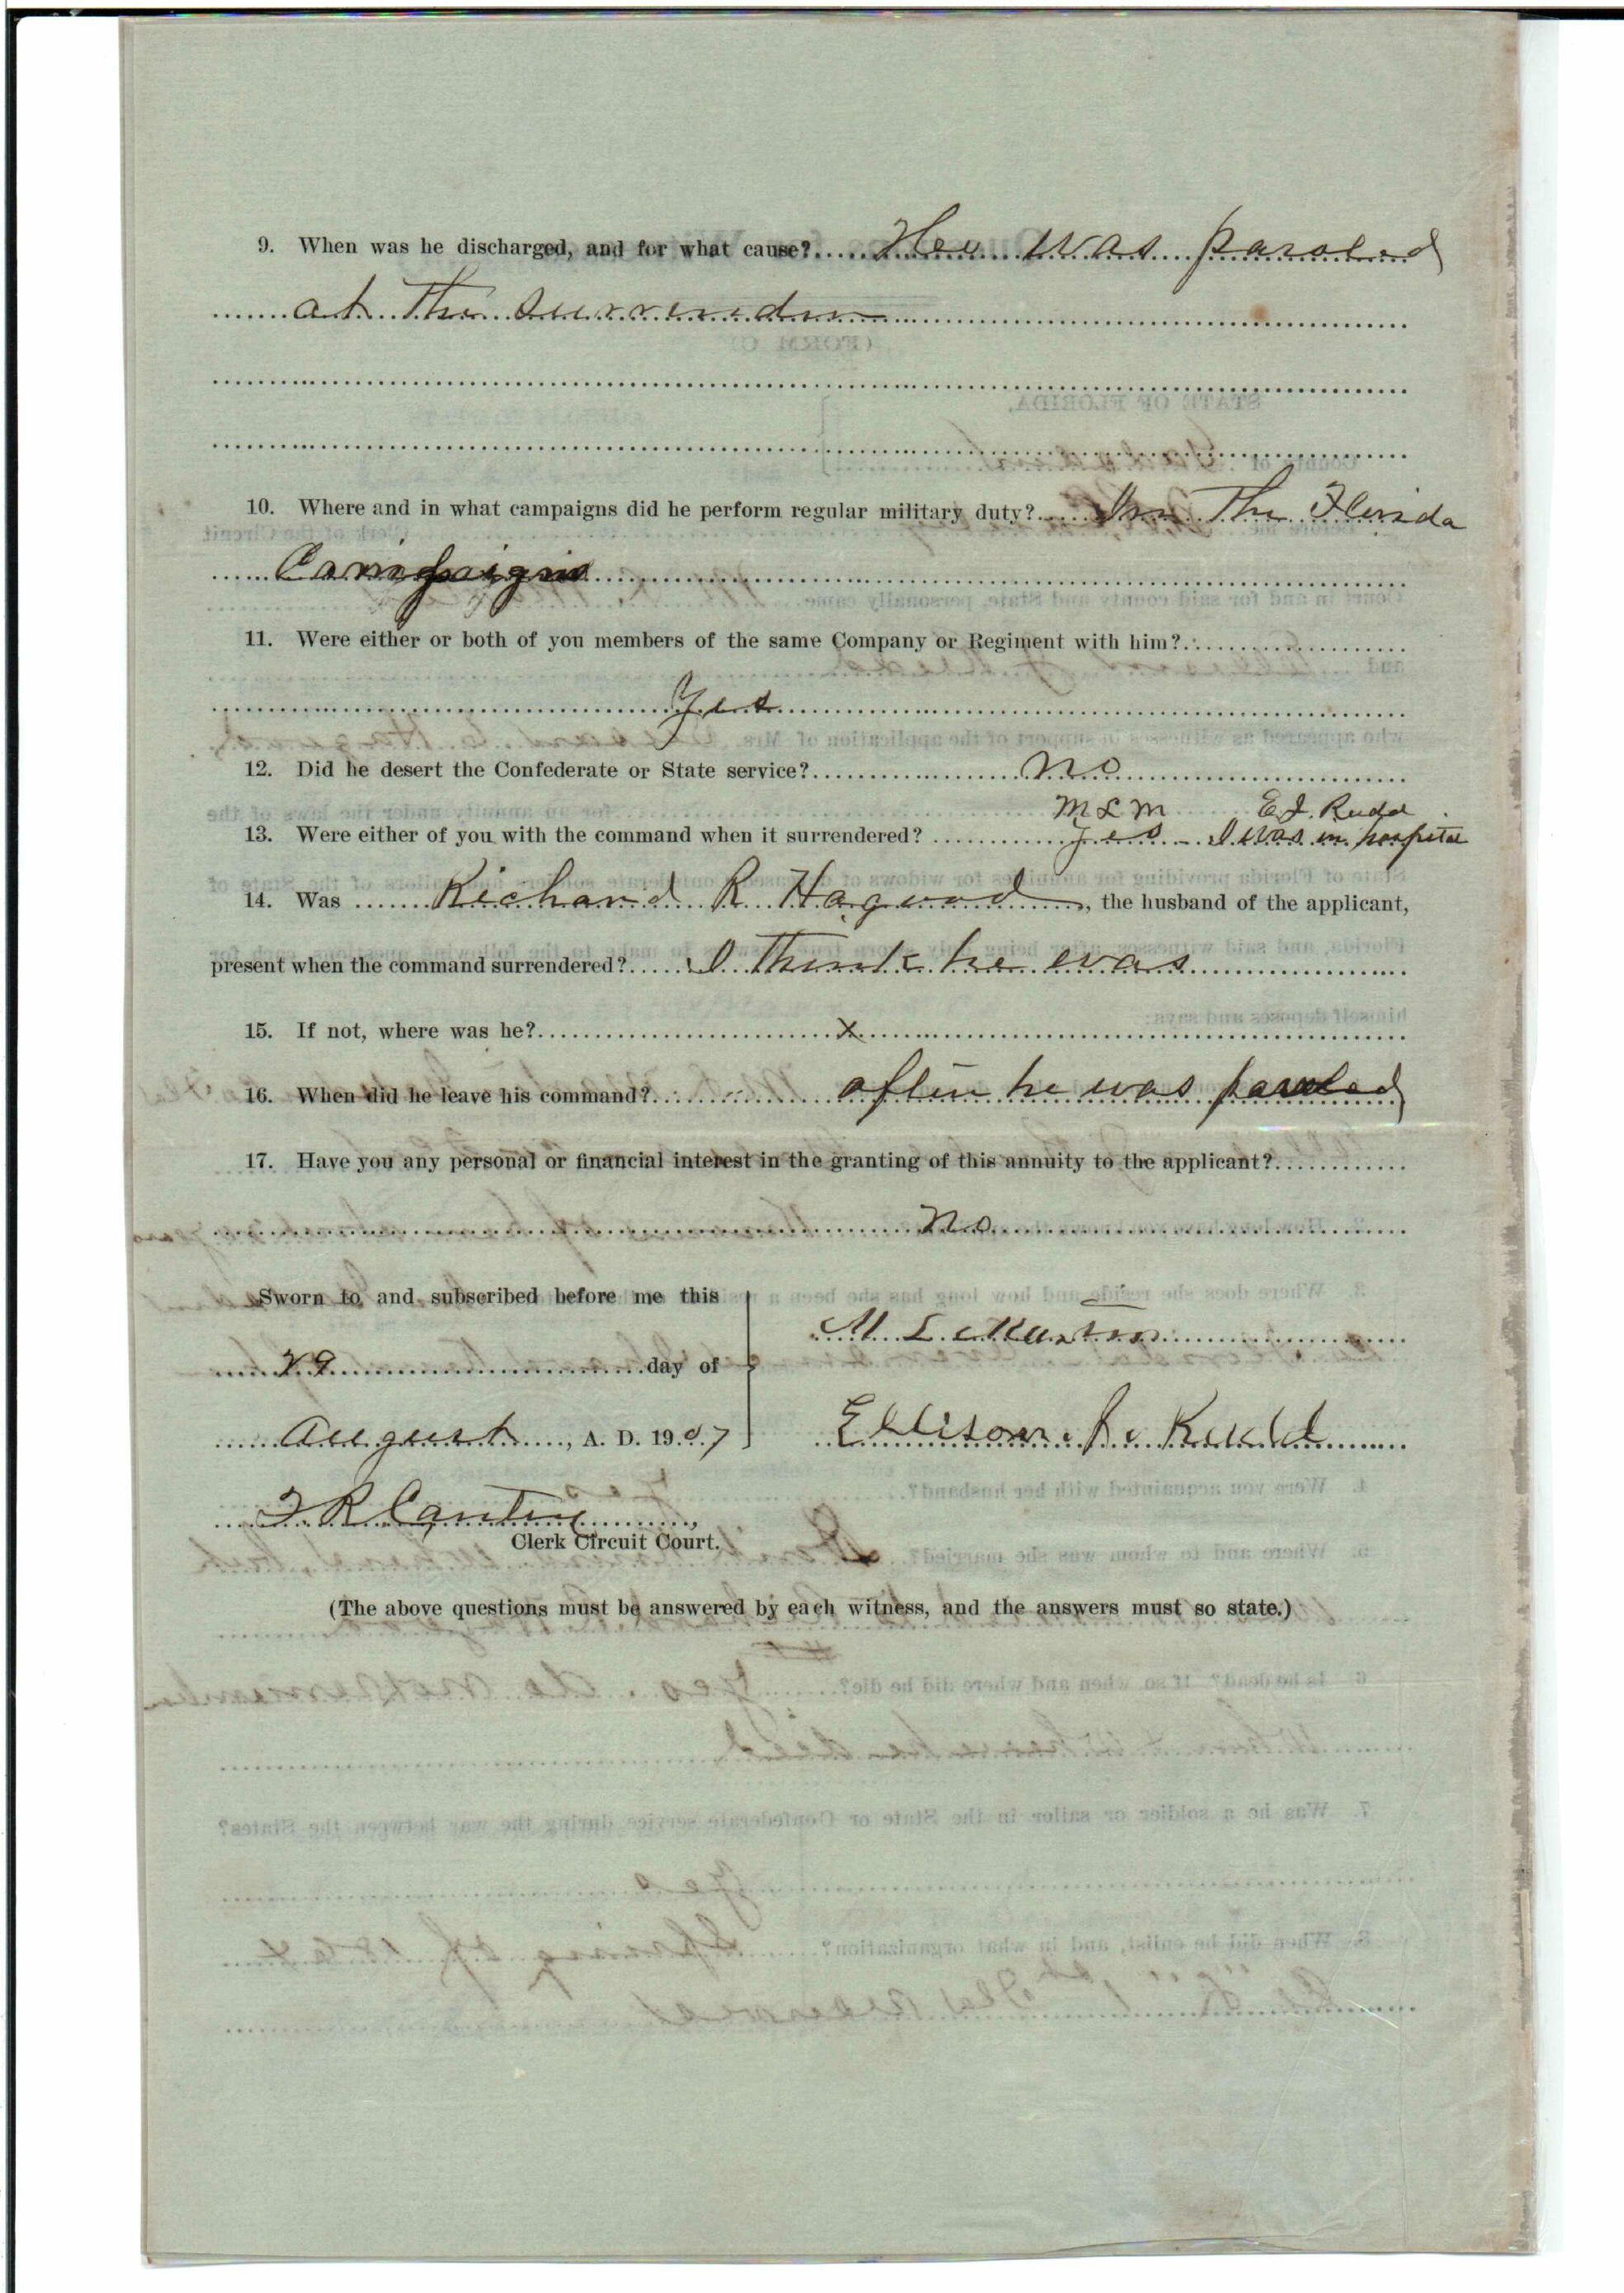 9. When was he discharged, and for what cause? He was paroled
at the surrender
10. Where and in what campaigns did he perform regular military duty? In The Florida
Campaigns
11. Were either or both of you members of the same Company or Regiment with him?
Yes
12. Did he desert the Confederate or State service? no
M L M E. J. Rudd
13. Were either of you with the command when it surrendered? yes - I was in hospital
14. Was Richard R Hagood, the husband of the applicant,
present when the command surrendered? I Think he was
15. If not, where was he? x
16. When did he leave his command? after he was paroled
17. Have you any personal or financial interest in the granting of this annuity to the applicant?
no
Sworn to and subscribed before me this
M L Martin
29 day of
August, A. D. 1907
Ellison J. Rudd
Clerk Circuit Court.
(The above questions must be answered by each witness, and the answers must so state.)